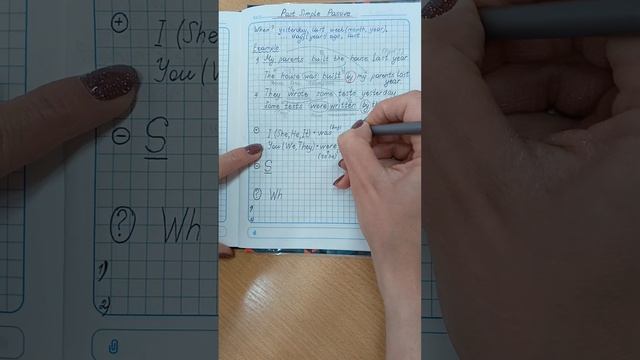 Past Simple Passive
When? yesterday, last week (month, year),
day (years) ago, last
Example
1 My parents built the house last year.
The house was built by my parents last
year.
2 They wrote some tests yesterday
Some tests were written by th
+ I (She, He, It) + was
You (We, They) + were
(to be)
- S
? Wh
1)
2)